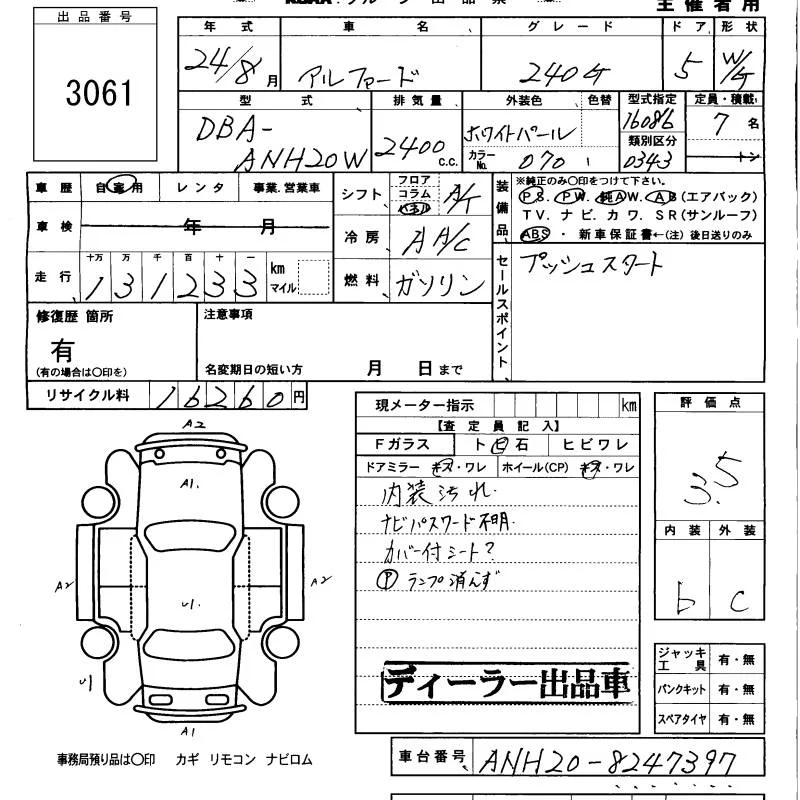 主催者用
出品番号
3061
年式 車名 グレード ドア 形状
24/8月 アルファード 240G 5 W/G
型式 排気量 外装色 色替 型式指定 定員・積載
DBA-ANH20W 2400c.c. ホワイトパール 16086 7名
カラーNo. 070 類別区分 0343 トン
車歴 自家用 レンタ 事業.営業車
車検 年 月
走行 十万 万 千 百 十 一
131233 km マイル
シフト フロア コラム パネル A/T
冷房 AA/C
燃料 ガソリン
装備品 ※純正のみ〇印をつけて下さい。
PS. PW. 純AW. AB(エアバック)
TV. ナビ. カワ. SR(サンルーフ)
ABS ・ 新車保証書←(注)後日送りのみ
セールスポイント プッシュスタート
修復歴 箇所
有
(有の場合は〇印を)
注意事項
名変期日の短い方 月 日まで
リサイクル料 16260円
現メーター指示 km
【査定員記入】
Fガラス ト飛石 ヒビワレ
ドアミラー キズ・ワレ ホイール(CP) キズ・ワレ
内装汚れ
ナビパスワード不明.
カバー付シート?
Ⓟランプ消えず
ディーラー出品車
評価点
3.5
内装 外装
b C
ジャッキ工具 有・無
パンクキット 有・無
スペアタイヤ 有・無
A2
A1.
A2
A2
U1.
U1
A1
事務局預り品は〇印 カギ リモコン ナビロム
車台番号 ANH20-8247397